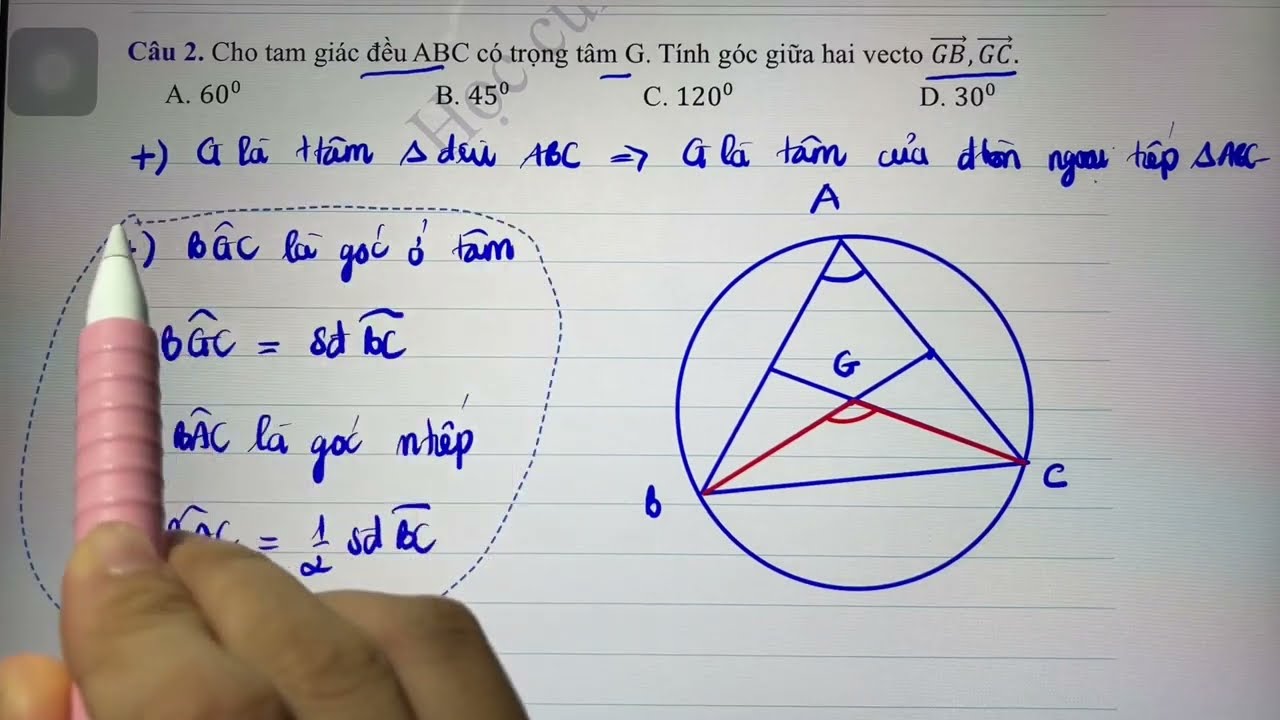 Câu 2. Cho tam giác đều ABC có trọng tâm G. Tính góc giữa hai vecto GB, GC.
A. 60⁰ B. 45⁰ C. 120⁰ D. 30⁰
+) G là ttâm Δ đều ABC => G là tâm của đtròn ngoại tiếp ΔABC
+) BGC là góc ở tâm
BGC = sđ BC
BAC là góc ntiếp
= 1/2 sđ BC
A
G
B
C
Học